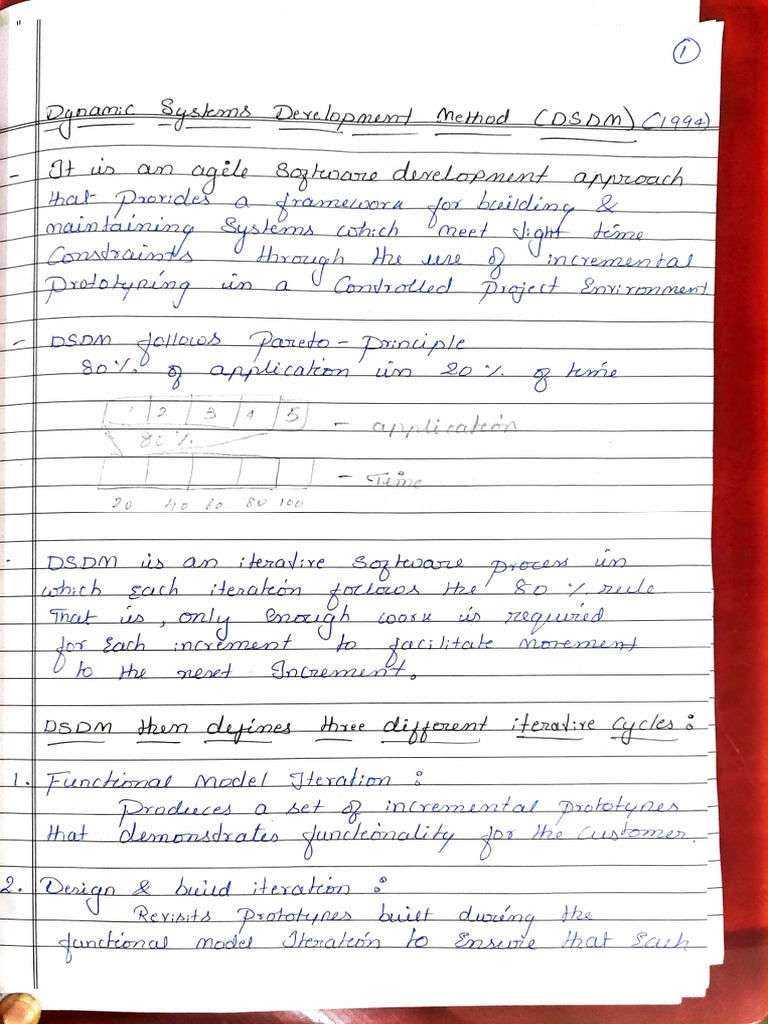 1
Dynamic Systems Development Method (DSDM) (1994)
- It is an agile software development approach
that provides a framework for building &
maintaining Systems which meet tight time
Constraints through the use of incremental
Prototyping in a Controlled Project Environment
- DSDM follows Pareto - Principle
80% of application in 20% of time
1 2 3 4 5 - application
80%
- Time
20 40 60 80 100
- DSDM is an iterative software process in
which each iteration follows the 80% rule
That is, only enough work is required
for each increment to facilitate movement
to the next Increment.
DSDM then defines three different iterative cycles :
1. Functional Model Iteration :
Produces a set of incremental prototypes
that demonstrates functionality for the Customer.
2. Design & build iteration :
Revisits Prototypes built during the
functional model Iteration to Ensure that Each